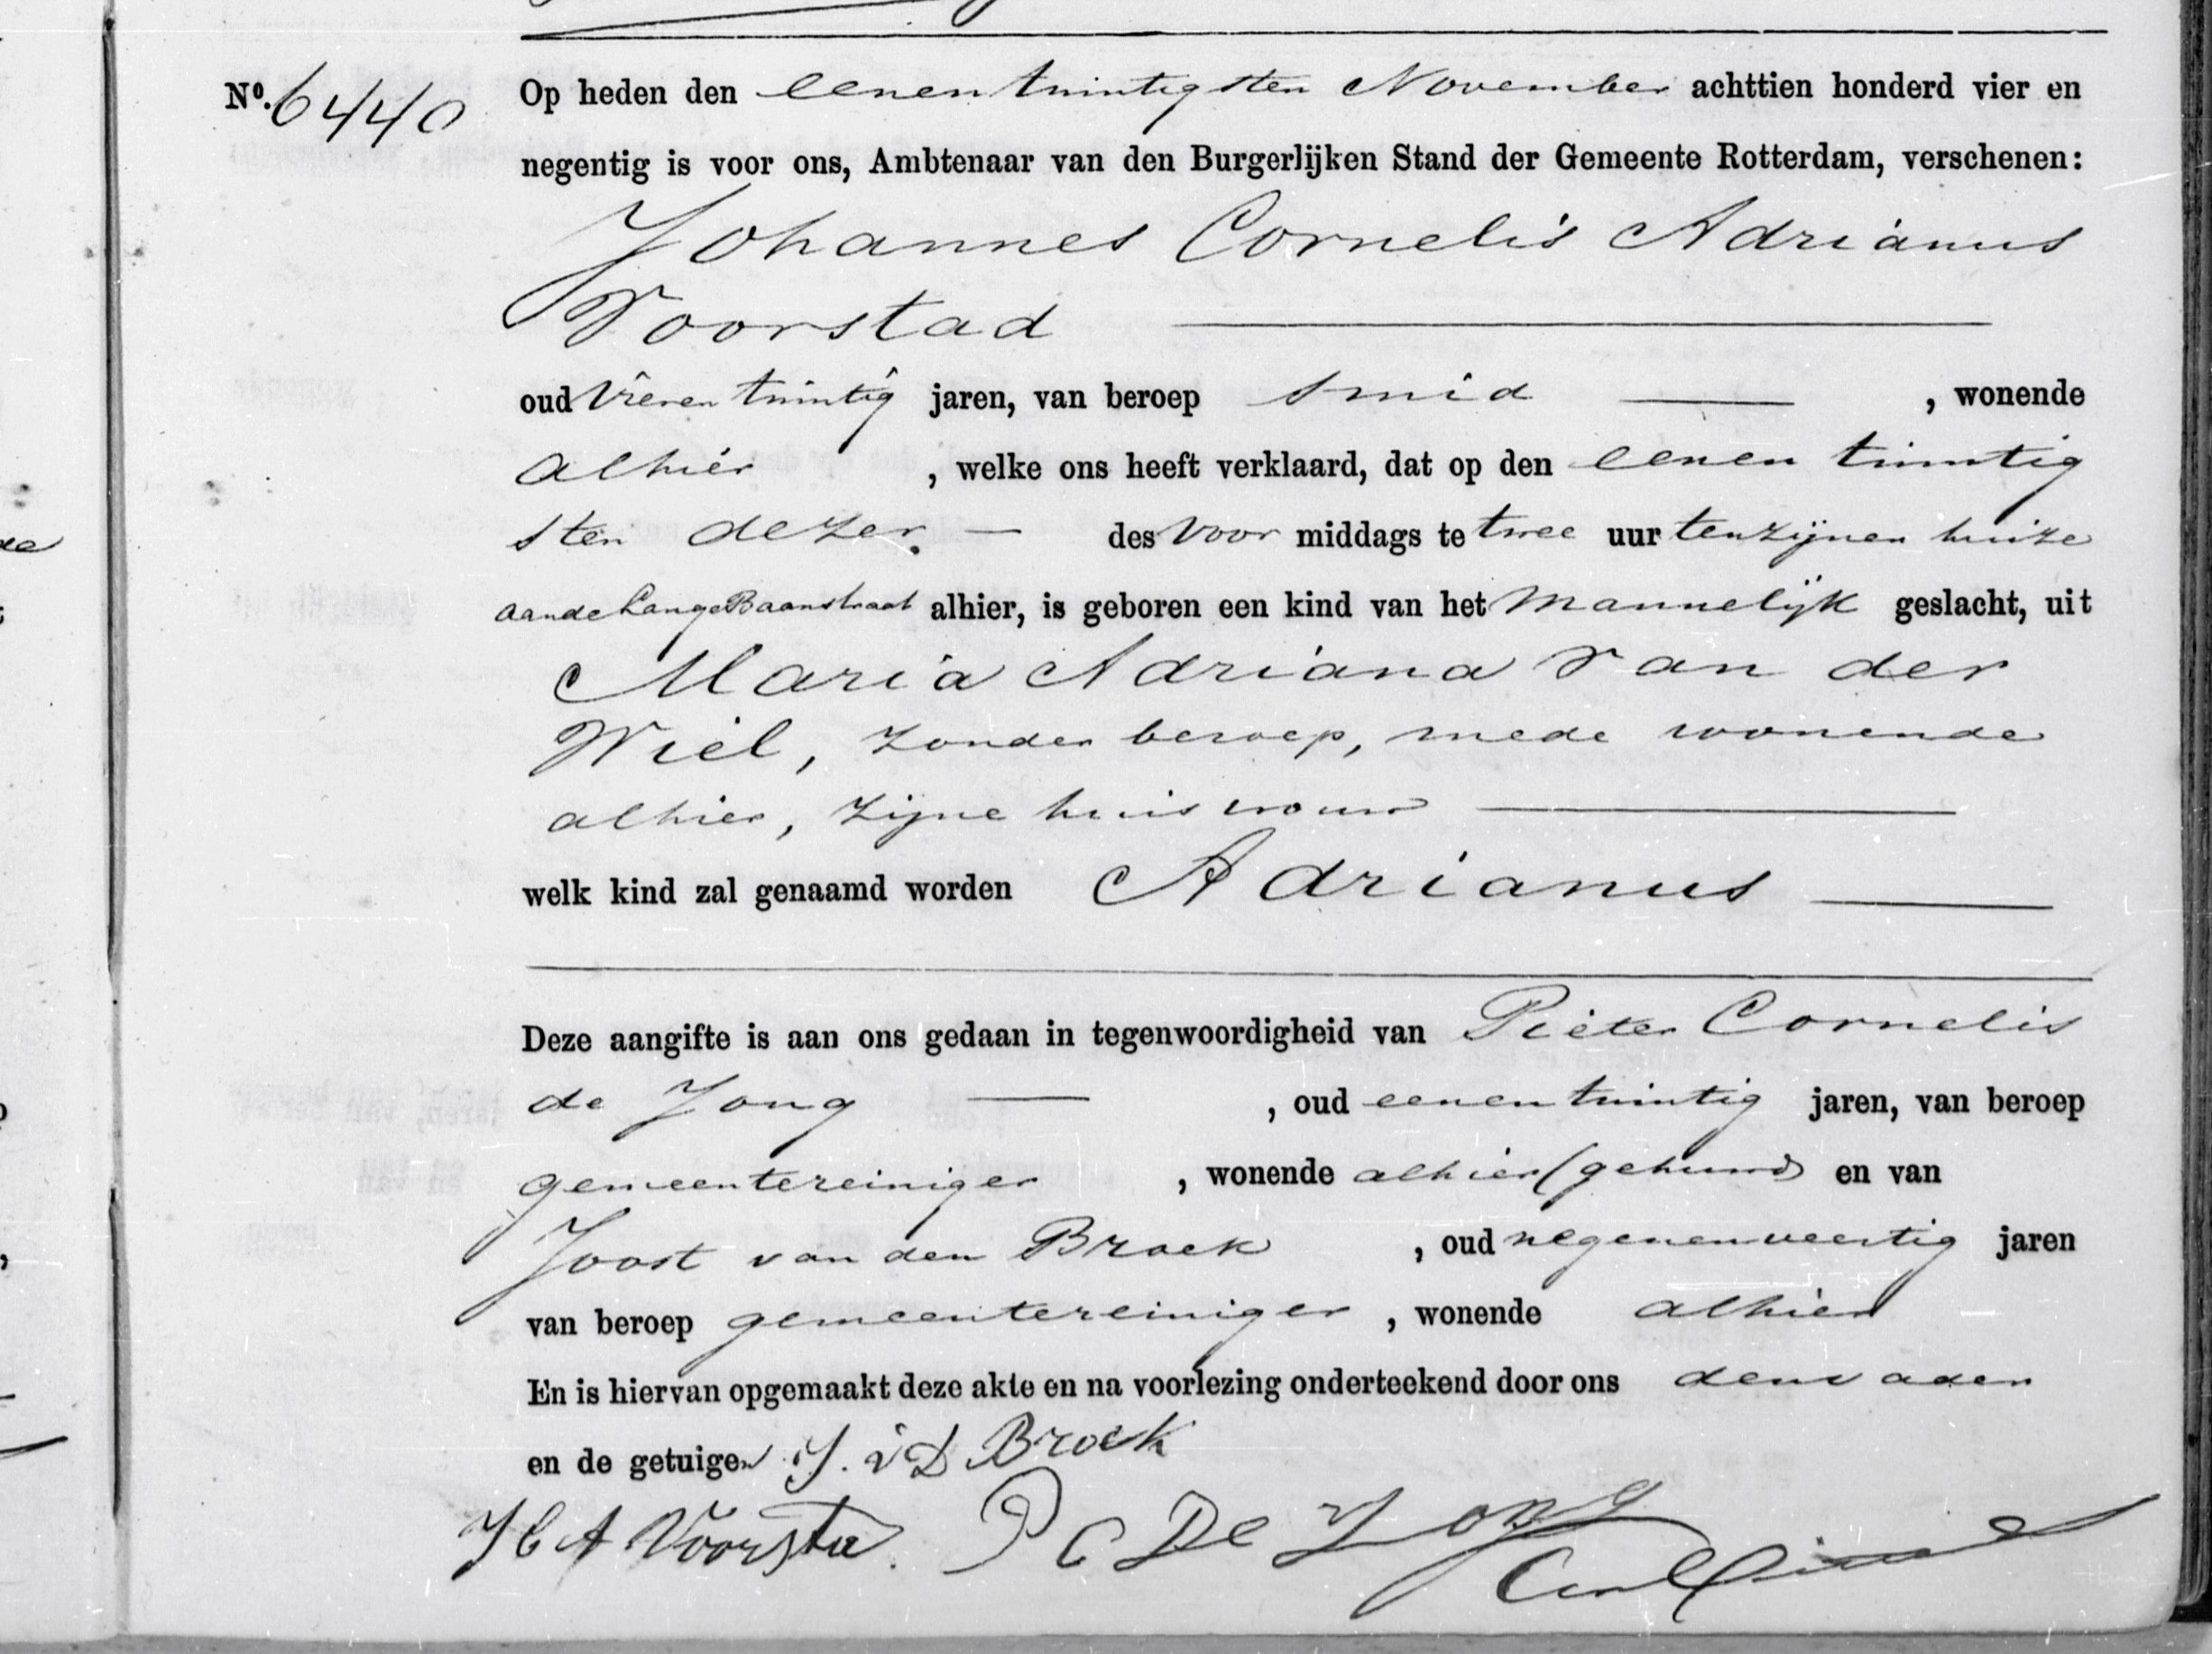 Nº. 6440
Op heden den eenentwintigsten November achttien honderd vier en
negentig is voor ons, Ambtenaar van den Burgerlijken Stand der Gemeente Rotterdam, verschenen:
Johannes Cornelis Adrianus
Voorstad
oud vierentwintig jaren, van beroep smid , wonende
alhier , welke ons heeft verklaard, dat op den eenentwintig
sten dezer des voor middags te twee uur ten zijnen huize
aan de Lange Baanstraat alhier, is geboren een kind van het mannelijk geslacht, uit
Maria Adriana van der
Wiel, zonder beroep, mede wonende
alhier, zijne huisvrouw
welk kind zal genaamd worden Adrianus
Deze aangifte is aan ons gedaan in tegenwoordigheid van Pieter Cornelis
de Jong , oud eenentwintig jaren, van beroep
gemeentereiniger , wonende alhier (gehuwd) en van
Joost van den Broek , oud negenenveertig jaren
van beroep gemeentereiniger , wonende alhier
En is hiervan opgemaakt deze akte en na voorlezing onderteekend door ons den vader
en de getuigen J. v D Broek
J C A Voorsta P C De Jong